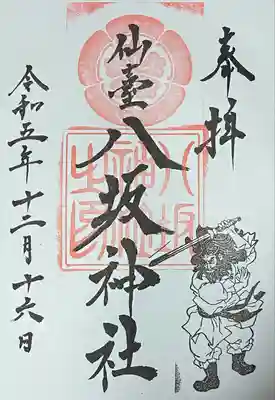 奉拝
仙臺
八坂神社
令和五年十二月十六日